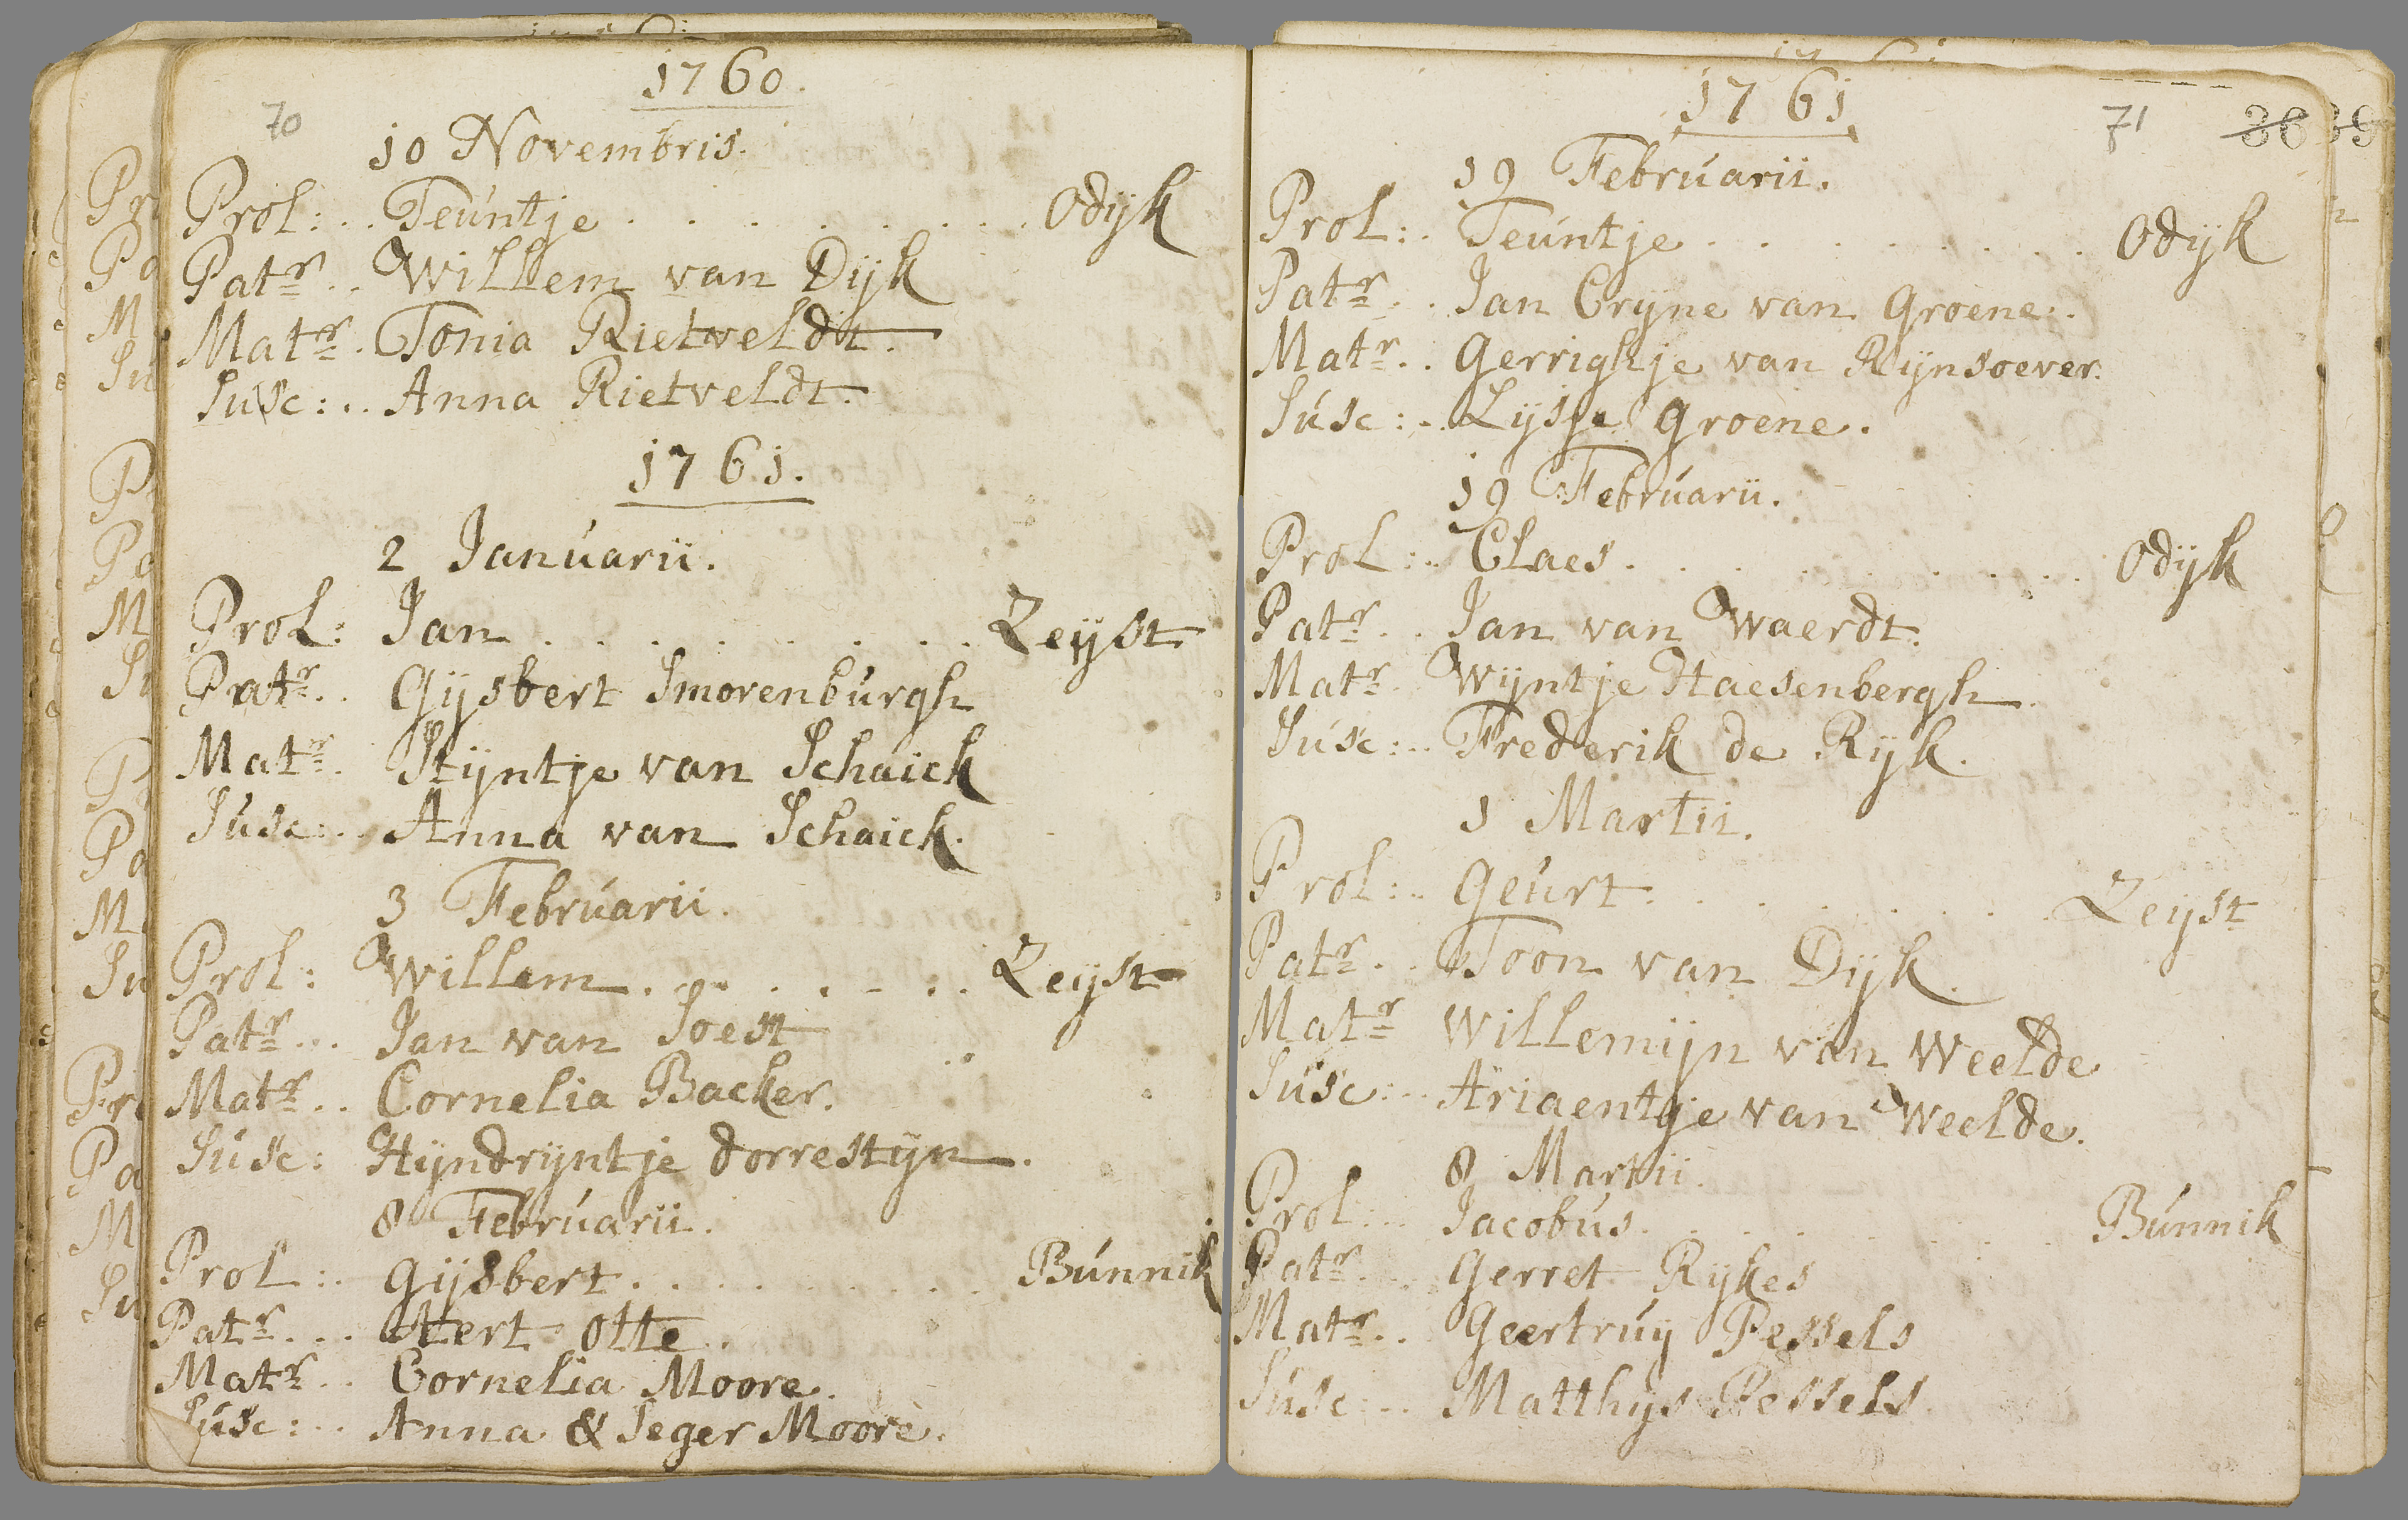 1760.
70
10 Novembris.
Prol: .. Teúntje . . . . . . . . Odijk
Patr .. Willem van Dijk
Matr . Tonia Rietveldt.
Susc: .. Anna Rietveldt.
1761.
2 Ianúarii.
Prol: Ian . . . . . . . . Zeijst
Patr .. Gijsbert Smorenbúrgh
Matr . Stijntje van Schaick
Súsc: .. Anna van Schaick.
3 Februarii.
Prol: Willem . . . . . . . Zeijst
Patr ... Ian van Soest
Matr .. Cornelia Backer.
Súsc: Hijndrijntje dorrestijn.
8 Februarii.
Prol: . Gijsbert . . . . . . . Búnnik
Patr ... Aert Otte.
Matr .. Cornelia Moore.
Súsc: .. Anna & Seger Moore.
1761
71
36 39
19 Februarii.
Prol: . Teúntje . . . . . . . . Odijk
Patr .. Ian Cryne van Groene.
Matr .. Gerrighje van Rijnsoever.
Súsc: .. Lijsje Groene.
19 Februarii.
Prol: .. Claes . . . . . . . . Odijk
Patr .. Ian van Waerdt.
Matr . Wijntje Haesenbergh.
Súsc: .. Frederik de Rijk.
1 Martii.
Prol: .. Geúrt . . . . . . . Zeijst
Patr .. Toon van Dijk.
Matr Willemijn van Weelde
Súsc: .. Ariaentje van Weelde.
8 Martii.
Prol: .. Iacobús . . . . . . . Búnnik
Patr ... Gerret Rijkes
Matr .. Geertrúij Pessels
Súsc: .. Matthijs Pessels.